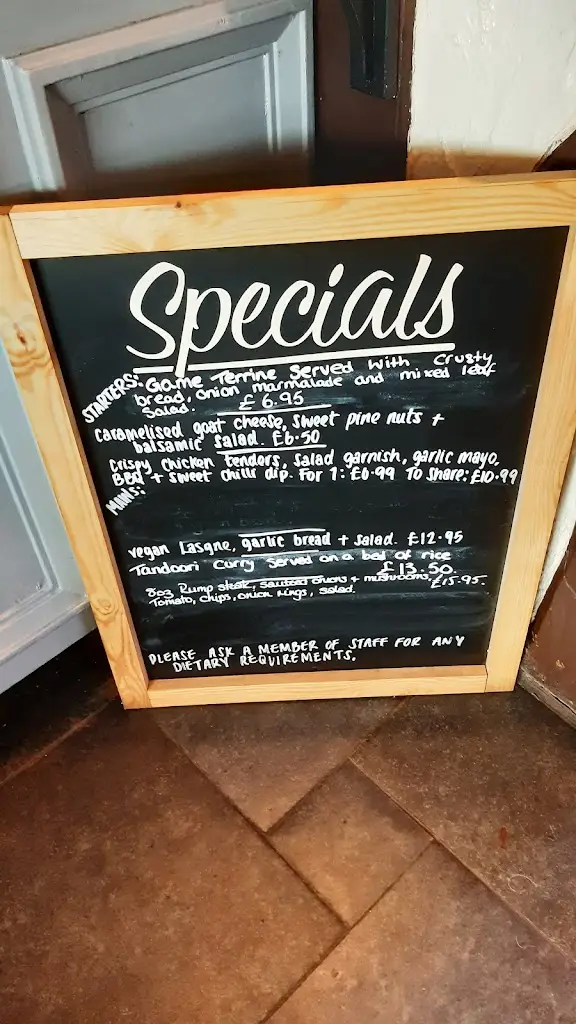 Specials
STARTERS: Game Terrine served with crusty
bread, onion marmalade and mixed leaf
salad. £6.95
caramelised goat cheese, sweet pine nuts +
balsamic salad. £6.50
crispy chicken tenders, salad garnish, garlic mayo,
BBQ + sweet chilli dip. For 1: £6.99 To share: £10.99
MAINS:
vegan Lasgne, garlic bread + salad. £12.95
Tandoori curry served on a bed of rice
£13.50
8oz Rump steak, sauteed onions + mushrooms, £15.95.
Tomato, chips, onion rings, salad.
PLEASE ASK A MEMBER OF STAFF FOR ANY
DIETARY REQUIREMENTS.